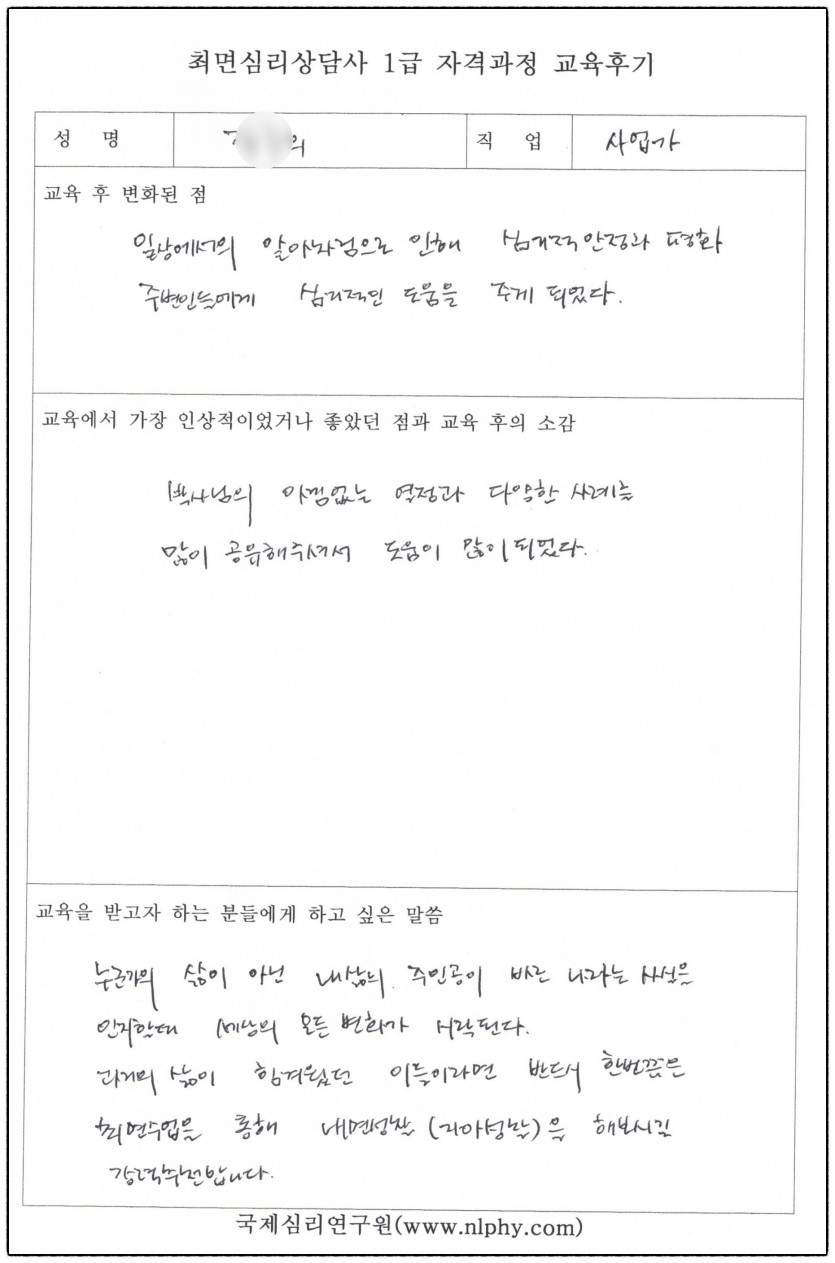 최면심리상담사 1급 자격과정 교육후기
성 명 의 직 업 사업가
교육 후 변화된 점
일상에서의 알아차림으로 인해 심리적안정과 평화
주변인들에게 심리적인 도움을 주게 되었다.
교육에서 가장 인상적이었거나 좋았던 점과 교육 후의 소감
박사님의 아낌없는 열정과 다양한 사례를
많이 공유해주셔서 도움이 많이 되었다.
교육을 받고자 하는 분들에게 하고 싶은 말씀
누군가의 삶이 아닌 내삶의 주인공이 바로 나라는 사실을
인지할때 세상의 모든 변화가 시작된다.
과거의 삶이 힘겨웠던 이들이라면 반드시 한번쯤은
최면수업을 통해 내면성찰 (자아성찰)을 해보시길
강력추천합니다.
국제심리연구원(www.nlphy.com)